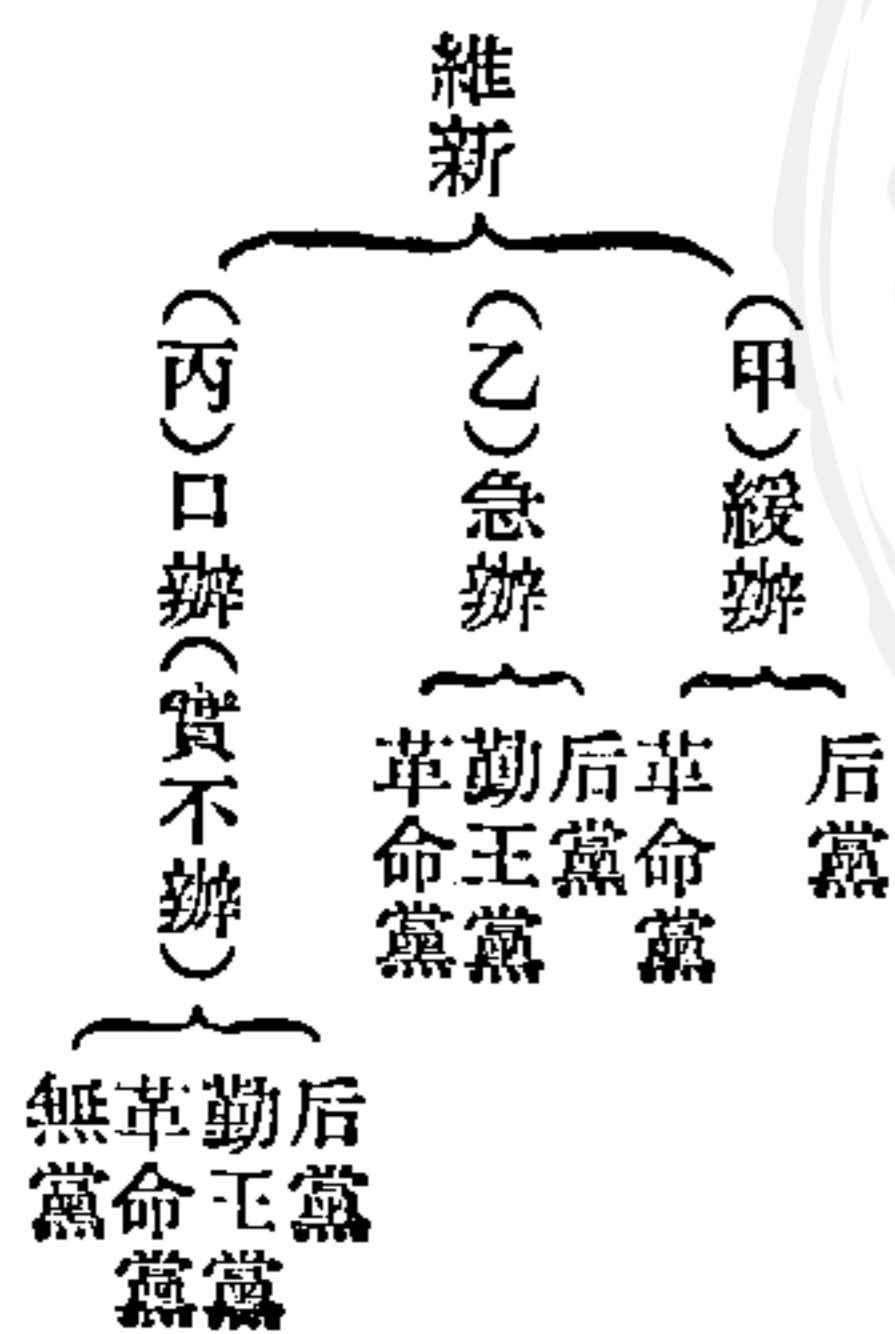 維新
（甲）緩辦
后黨
革命黨
（乙）急辦
后黨
勤王黨
革命黨
（丙）口辦（實不辦）
后黨
勤王黨
革命黨
無黨